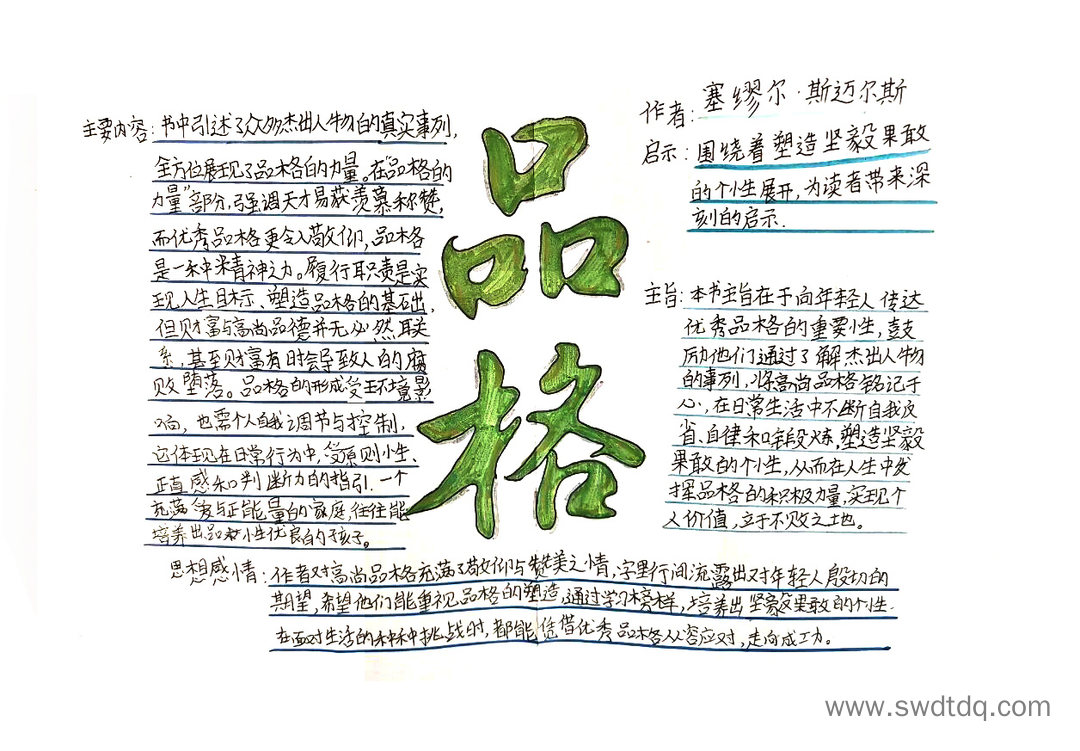 主要内容:书中引述了众多杰出人物的真实事列,
全方位展现了品格的力量。在“品格的
力量”部分,强调天才易获羡慕称赞,
而优秀品格更令人敬仰,品格
是一种精神之力。履行职责是实
现人生目标、塑造品格的基础,
但财富与高尚品德并无必然联
系,甚至财富有时会导致人的腐
败堕落。品格的形成受环境影
响,也需个人自我调节与控制,
这体现在日常行为中,受原则性、
正直感和判断力的指引.一个
充满爱与正能量的家庭往往能
培养出品性优良的孩子。
品
品格
作者:塞缪尔·斯迈尔斯
启示:围绕着塑造坚毅果敢
的个性展开,为读者带来深
刻的启示.
主旨:本书主旨在于向年轻人传达
优秀品格的重要性,鼓
励他们通过了解杰出人物
的事列,将高尚品格铭记于
心,在日常生活中不断自我反
省、自律和锻炼,塑造坚毅
果敢的个性,从而在人生中发
挥品格的积极力量,实现个
人价值,立于不败之地。
思想感情:作者对高尚品格充满了敬仰与赞美之情,字里行间流露出对年轻人殷切的
期望,希望他们能重视品格的塑造,通过学习榜样,培养出坚毅果敢的个性.
在面对生活的种种挑战时,都能凭借优秀品格从容应对,走向成功。
www.swdtdq.com